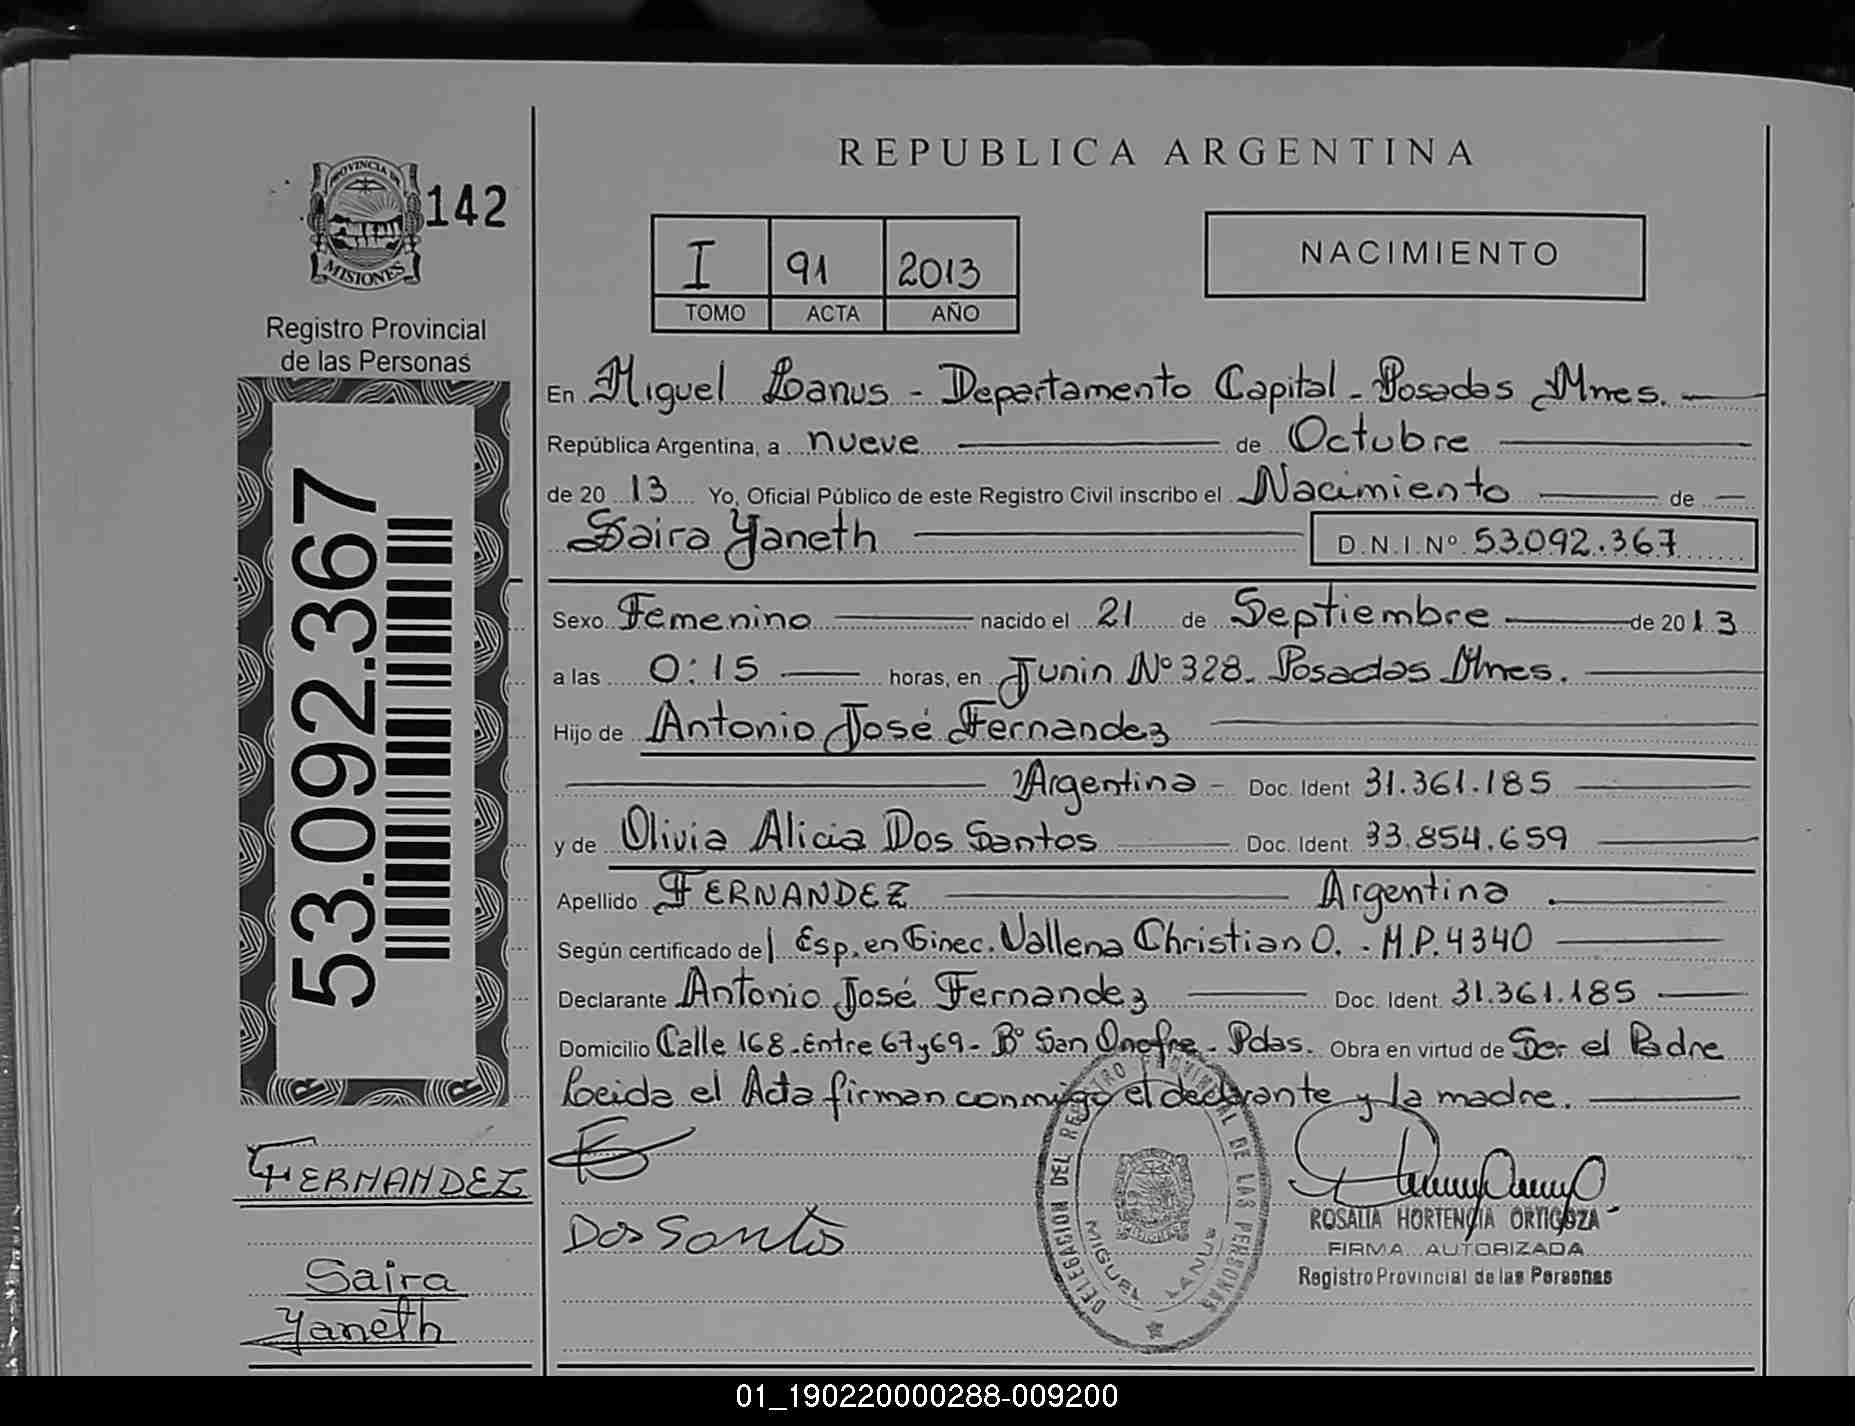 REPUBLICA ARGENTINA
PROVINCIA DE
MISIONES
142
Registro Provincial
de las Personas
I 91 2013
TOMO ACTA AÑO
NACIMIENTO
En Miguel Lanus - Departamento Capital - Posadas Mnes.
República Argentina, a nueve de Octubre
de 2013 Yo, Oficial Público de este Registro Civil inscribo el Nacimiento de
Saira Yaneth D.N.I.Nº 53.092.367
Sexo Femenino nacido el 21 de Septiembre de 2013
a las 0:15 horas, en Junin Nº 328. Posadas Mnes.
Hijo de Antonio José Fernandez
Argentina - Doc. Ident 31.361.185
y de Olivia Alicia Dos Santos Doc. Ident. 33.854.659
Apellido FERNANDEZ Argentina.
Según certificado del Esp. en Ginec. Vallena Christian O. - M.P. 4340
Declarante Antonio José Fernandez Doc. Ident. 31.361.185
Domicilio Calle 168. Entre 67y69 - Bº San Onofre - Pdas. Obra en virtud de Ser el Padre
Leida el Acta firman conmigo el declarante y la madre.
53.092.367
FERNANDEZ
Saira
Yaneth
Dos Santos
DELEGACION DEL REGISTRO PROVINCIAL DE LAS PERSONAS
MIGUEL LANUS
ROSALIA HORTENCIA ORTIGOZA
FIRMA AUTORIZADA
Registro Provincial de las Personas
01_190220000288-009200